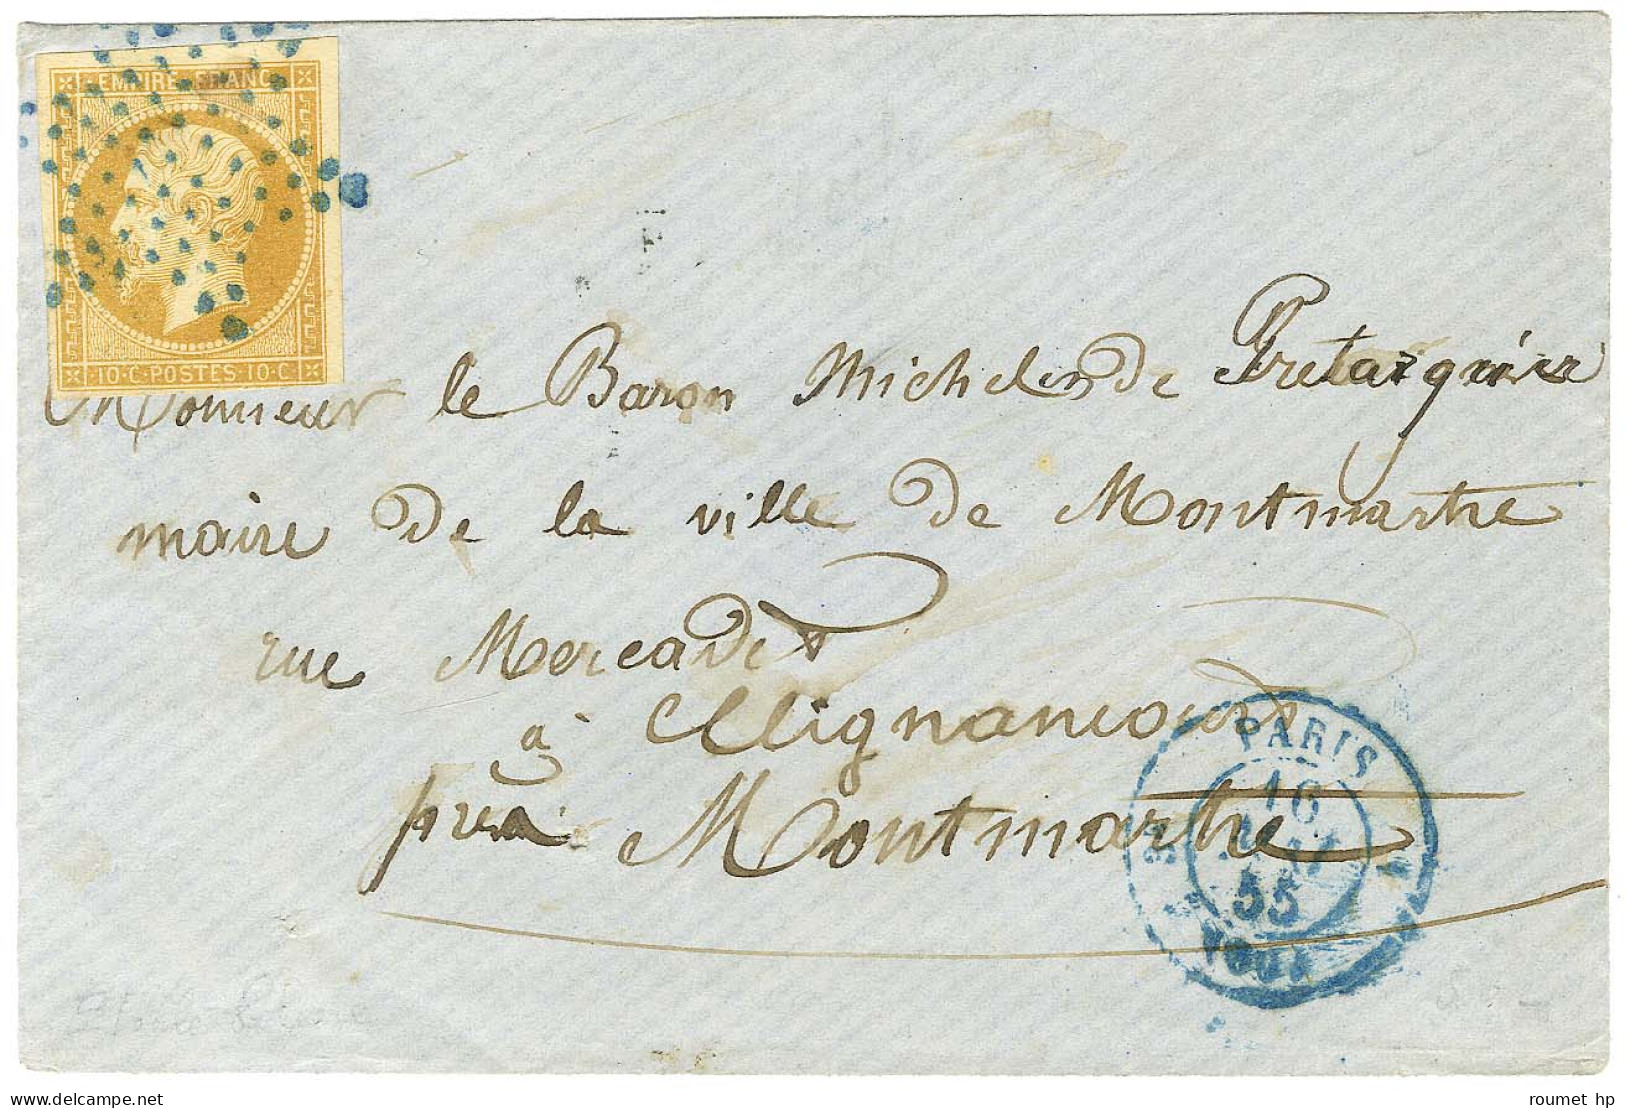 EMPIRE FRANC
10·C·POSTES·10·C
Monsieur le Baron Michel de de Pretarquier
maire de la ville de Montmartre
rue Mercadet
à Clignancourt
près Montmartre
PARIS
16
55
delcampe.net
roumet hp